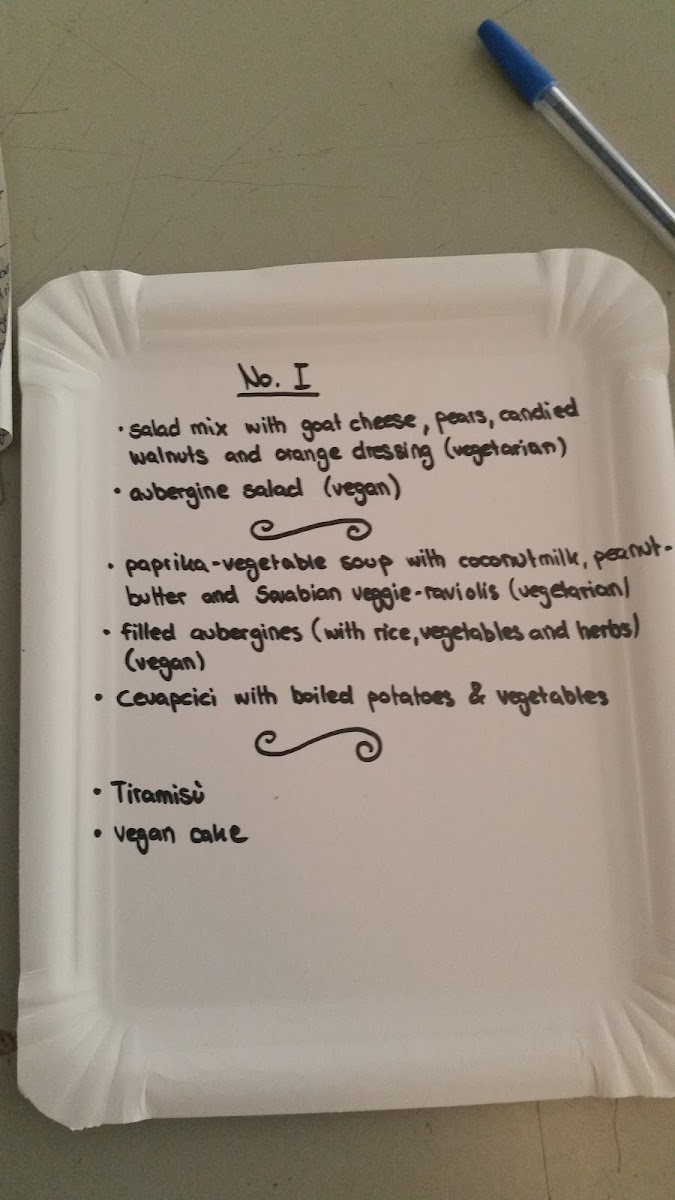 No. I
• salad mix with goat cheese, pears, candied
walnuts and orange dressing (vegetarian)
• aubergine salad (vegan)
• paprika-vegetable soup with coconutmilk, peanut-
butter and Swabian veggie-raviolis (vegetarian)
• filled aubergines (with rice, vegetables and herbs)
(vegan)
• Cevapcici with boiled potatoes & vegetables
• Tiramisù
• vegan cake